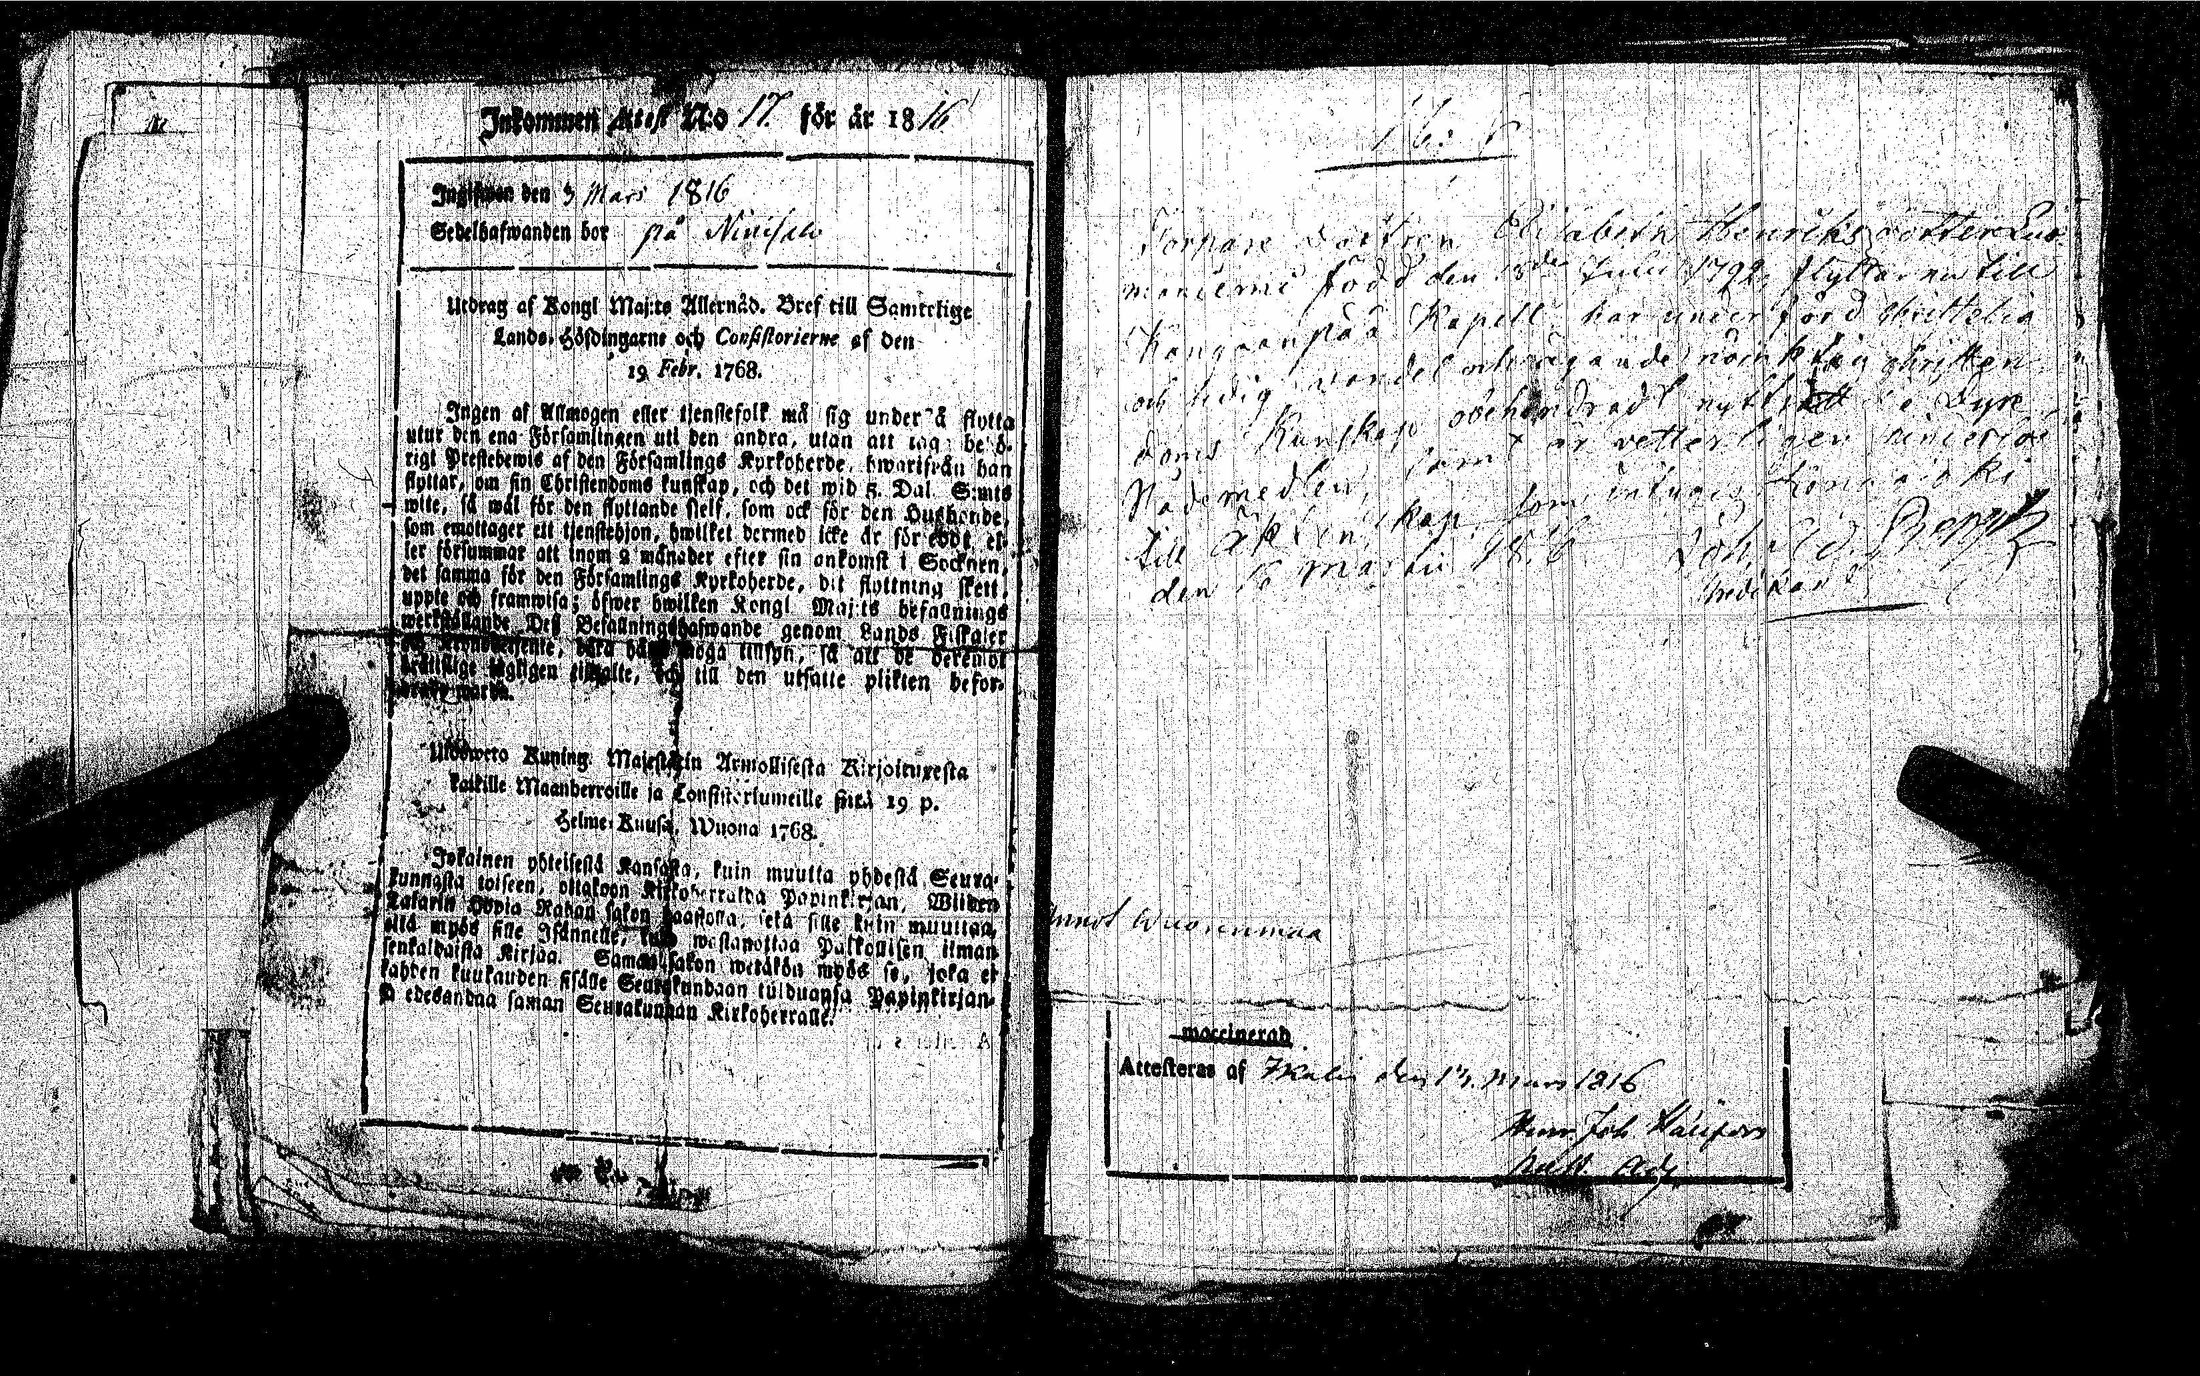 Inkommen Attest N:o 17. för år 1816
Ingifwen den 3 Mars 1816
Sedelhafwanden bor på Niinisalo
Utdrag af Kongl Maj:ts Allernåd. Bref till Samtelige
Lands-Höfdingarne och Consistorierne af den
19 Febr. 1768.
Ingen af Allmogen eller tjenstefolk må sig understå flytta
utur den ena Församlingen uti den andra, utan att taga behö-
rigt Prestebewis af den Församlings Kyrkoherde, hwarifrån han
flyttar, om sin Christendoms kunskap, och det wid 5. Dal. S:mts
wite, så wäl för den flyttande sjelf, som ock för den Husbonde,
som emottager ett tjenstehjon, hwilket dermed icke är försedt, el-
ler försummar att inom 2 månader efter sin ankomst i Socknen,
det samma för den Församlings Kyrkoherde, dit flyttning skett,
uppte och framwisa; öfwer hwilken Kongl Maj:ts befallnings
werkställande Deß Befallningshafwande genom Lands Fiskaler
och Kronobetjente, böra hafwa noga tillsyn, så att de deremot
brättslige lagligen tilltalte, och till den utsatte plikten befor-
drade warda.
Ulosweto Kuning. Majestätin Armollisesta Kirjoituxesta
kaikille Maanherroille ja Consistoriumeille siitä 19 p.
Helme-Kuusa, Wuona 1768.
Jokainen yhteisestä Kansasta, kuin muutta yhdestä Seura-
kunnasta toiseen, ottakoon Kirkoherralda Papinkirjan, Wiiden
Talarin Hopia Rahan sakon haastolla, sekä sille kuin muuttaa,
että myös sille Isännelle, kuin wastanottaa Palkollisen ilman
senkaldaista Kirjaa. Saman sakon wetäkön myös se, joka ei
kahden kuukauden sisälle Seurakundaan tulduansa Papinkirjan-
sa edesandaa saman Seurakunnan Kirkoherralle.
Torpare Dottren Elisabeth Henriks dotter
född den 18de Julii 1792, flyttar nu till
Kangaanpää Kapell har under förd Christelig
och ledig vandel och ägande nöjaktig Christen-
doms Kunskap obehindradt nyttjat de Dyre
Nådemedlen, samt är vetterligen hinderlös
till Äktenskap, som intygar
den 16 Martii 1816 Joh.
Predikant
Wuorenmaa
waccinerad
Attesteras af Ikalis den 13. Mars 1816
Henr. Joh.
Past. Adj.